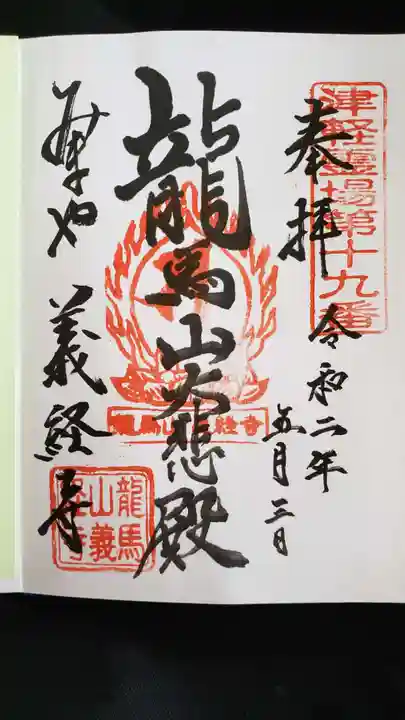 津軽靈場第十九番
奉拝
令和二年
五月三日
龍馬山大悲殿
龍馬山義経寺
みんまや 義経寺
龍馬
山義
経寺